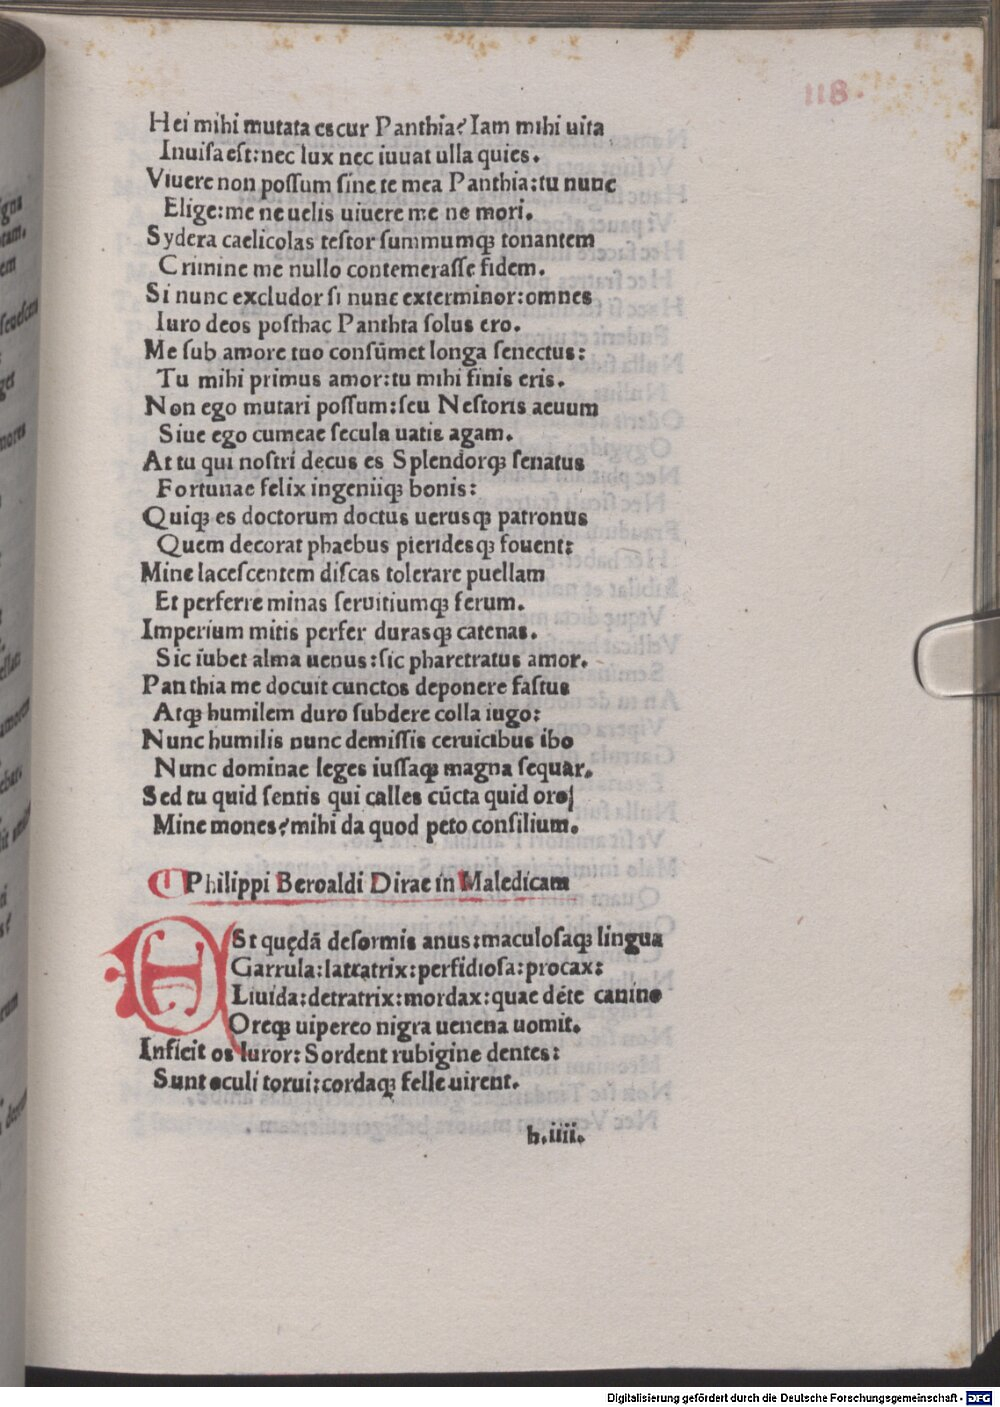 118.
Hei mihi mutata es cur Panthia? Iam mihi uita
Inuiſa eſt: nec lux nec iuuat ulla quies.
Viuere non poſſum ſine te mea Panthia: tu nunc
Elige: me ne uelis uiuere me ne mori.
Sydera caelicolas teſtor ſummumqꝫ tonantem
Crimine me nullo contemeraſſe fidem.
Si nunc excludor ſi nunc exterminor: omnes
Iuro deos poſthac Panthta ſolus ero.
Me ſub amore tuo conſūmet longa ſenectus:
Tu mihi primus amor: tu mihi finis eris.
Non ego mutari poſſum: ſeu Neſtoris aeuum
Siue ego cumeae ſecula uatis agam.
At tu qui noſtri decus es Splendorqꝫ ſenatus
Fortunae felix ingeniiqꝫ bonis:
Quiqꝫ es doctorum doctus uerusqꝫ patronus
Quem decorat phaebus pieridesqꝫ fouent:
Mine laceſcentem diſcas tolerare puellam
Et perferre minas ſeruitiumqꝫ ferum.
Imperium mitis perfer durasqꝫ catenas.
Sic iubet alma uenus: ſic pharetratus amor.
Panthia me docuit cunctos deponere faſtus
Atqꝫ humilem duro ſubdere colla iugo:
Nunc humilis nunc demiſſis ceruicibus ibo
Nunc dominae leges iuſſaqꝫ magna ſequar.
Sed tu quid ſentis qui calles cūcta quid oro
Mine mones? mihi da quod peto conſilium.
Philippi Beroaldi Dirae in Maledicam
ESt quędā deformis anus: maculoſaqꝫ lingua
Garrula: latratrix: perfidioſa: procax:
Liuida: detratrix: mordax: quae dēte canino
Oreqꝫ uipereo nigra uenena uomit.
Inficit os luror: Sordent rubigine dentes:
Sunt oculi torui: cordaqꝫ felle uirent.
h.iiii.
Digitalisierung gefördert durch die Deutsche Forschungsgemeinschaft - DFG